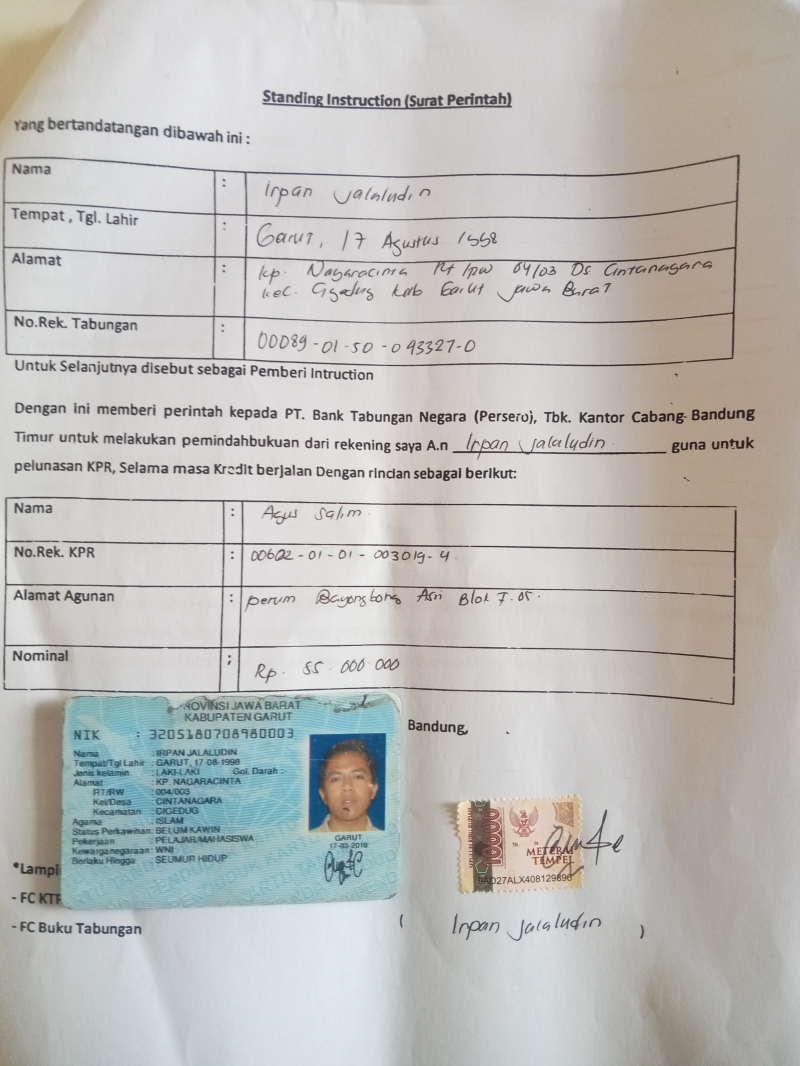 Standing Instruction (Surat Perintah)
Yang bertandatangan dibawah ini :
Nama : Irpan Jalaludin
Tempat , Tgl. Lahir : Garut, 17 Agustus 1998
Alamat : Kp. Nagaracinta Rt/rw 04/03 Ds Cintanagara
kec. Cigedug kab Garut Jawa Barat
No.Rek. Tabungan : 00089-01-50-093327-0
Untuk Selanjutnya disebut sebagai Pemberi Intruction
Dengan ini memberi perintah kepada PT. Bank Tabungan Negara (Persero), Tbk. Kantor Cabang Bandung
Timur untuk melakukan pemindahbukuan dari rekening saya A.n Irpan Jalaludin guna untuk
pelunasan KPR, Selama masa Kredit berjalan Dengan rincian sebagai berikut:
Nama : Agus Salim
No.Rek. KPR : 00602-01-01-003019-4
Alamat Agunan : perum Bayongbong Asri Blok F.05.
Nominal ; Rp. 55.000.000
PROVINSI JAWA BARAT
KABUPATEN GARUT
NIK : 3205180708980003
Nama : IRPAN JALALUDIN
Tempat/Tgl Lahir : GARUT, 17-08-1998
Jenis kelamin : LAKI-LAKI Gol. Darah : -
Alamat : KP. NAGARACINTA
RT/RW : 004/003
Kel/Desa : CINTANAGARA
Kecamatan : CIGEDUG
Agama : ISLAM
Status Perkawinan: BELUM KAWIN
Pekerjaan : PELAJAR/MAHASISWA
Kewarganegaraan: WNI
Berlaku Hingga : SEUMUR HIDUP
GARUT
17-03-2018
Bandung,
10000
METERAI
TEMPEL
9AD27ALX408129896
*Lampi
- FC KTP
- FC Buku Tabungan
( Irpan Jalaludin )